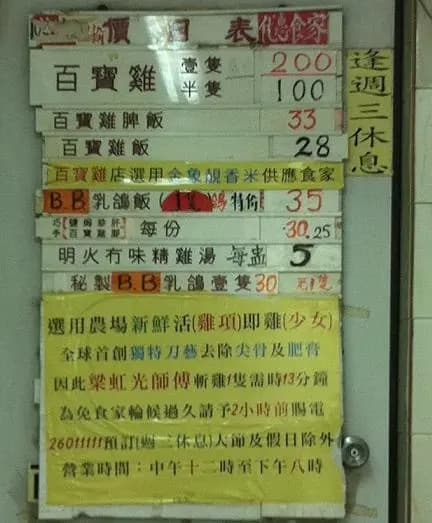 價目表
百寶雞 壹隻 200
半隻 100
百寶雞脾飯 33
百寶雞飯 28
百寶雞店選用金象靚香米供應食家
B.B乳鴿飯 特价 35
每份 30.25
明火冇味精雞湯 每盅 5
秘製B.B乳鴿壹隻30
選用農場新鮮活(雞項)即雞(少女)
全球首創獨特刀藝去除尖骨及肥膏
因此梁虹光師傅斬雞1隻需時13分鐘
為免食家輪候過久請予2小時前賜電
26011111預訂(週三休息)大節及假日除外
營業時間：中午十二時至下午八時
逢週三休息